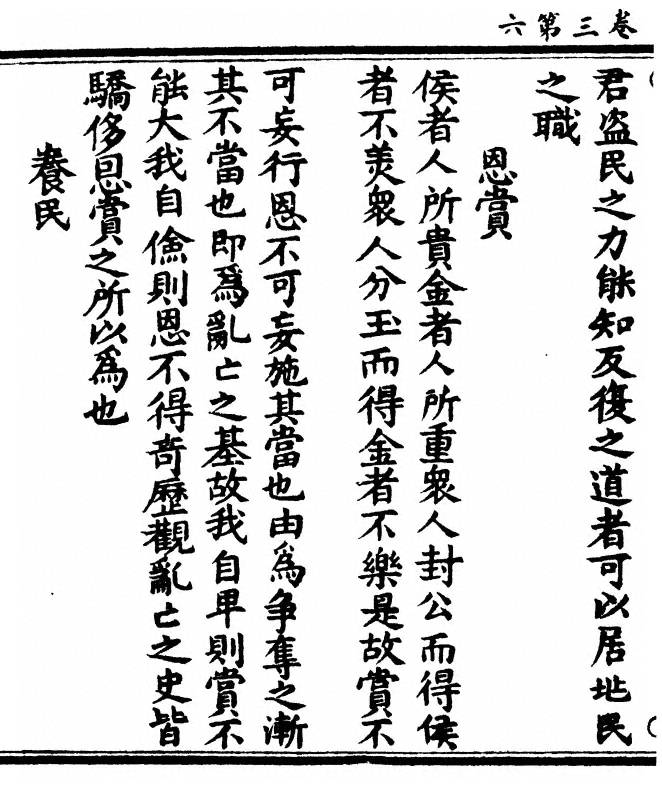 卷三第六
君盗民之力能知反復之道者可以居兆民
之職
恩賞
侯者人所貴金者人所重衆人封公而得侯
者不羡衆人分玉而得金者不樂是故賞不
可妄行恩不可妄施其當也由爲争奪之漸
其不當也即爲亂亡之基故我自卑則賞不
能大我自儉則恩不得奇歷觀亂亡之史皆
驕侈恩賞之所以爲也
養民